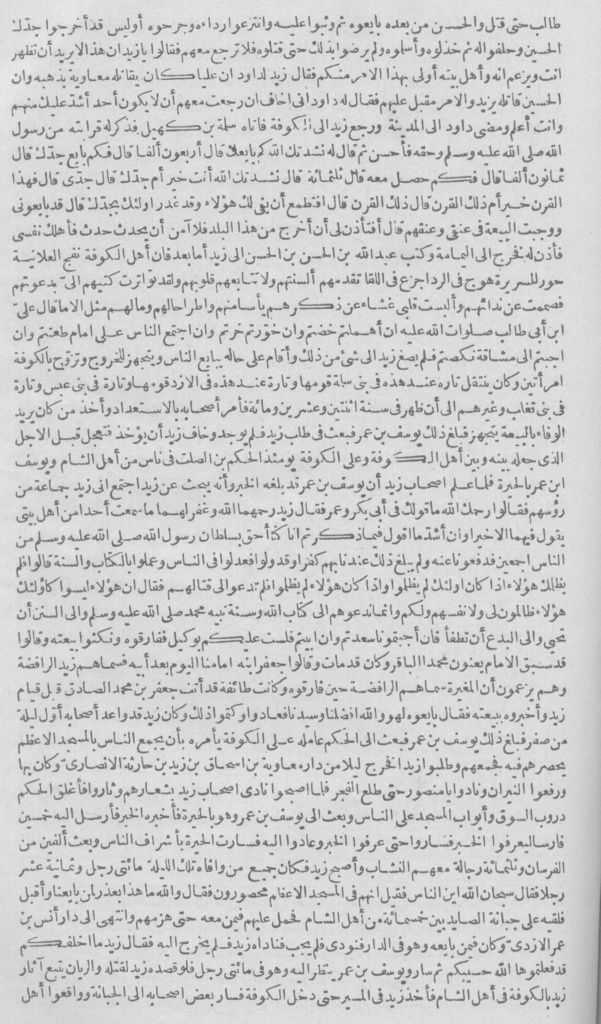 طالب حتى قتل والحسن من بعده بايعوه ثم وثبوا عليه وانتزعوا رداءه وجرحوه أوليس قد أخرجوا جدّك
الحسين وحلفوا له ثم خذلوه وأسلموه ولم يرضوا بذلك حتى قتلوه فلا ترجع معهم فقالوا يازيد ان هذا لا يريد أن تظهر
انت ويزعم انه وأهل بيته أولى بهذا الامر منكم فقال زيد لداود ان عليا كان يقاتله معاوية بذهبه وان
الحسين قاتله يزيد والامر مقبل عليهم فقال له داود انى أخاف ان رجعت معهم أن لا يكون أحد أشدّ عليك منهم
وانت أعلم ومضى داود الى المدينة ورجع زيد الى الكوفة فأتاه سلمة بن كهيل فذكر له قرابته من رسول
الله صلى الله عليه وسلم وحقه فأحسن ثم قال له نشدتك الله كم بايعك قال أربعون ألفا قال فكم بايع جدّك قال
ثمانون ألفا قال فكم حصل معه قال ثلثمائة قال نشدتك الله أنت خير أم جدّك قال جدّى قال فهذا
القرن خير أم ذلك القرن قال ذلك القرن قال افتطمع أن يفى لك هؤلاء وقد غدر اولئك بجدّك قال قد بايعونى
ووجبت البيعة فى عنقى وعنقهم قال أفتأذن لى أن أخرج من هذا البلد فلا آمن أن يحدث حدث فأهلك نفسى
فأذن له فخرج الى اليمامة وكتب عبدالله بن الحسن بن الحسن الى زيد أما بعد فان أهل الكوفة نفج العلانية
حور للسريرة هوج فى الردا جزع فى اللقا تقدمهم ألسنتهم ولا تتابعهم قلوبهم ولقد تواترت كتبهم الىّ بدعوتهم
فصممت عن ندائهم وألبست قلبى غشاء عن ذكرهم يأسا منهم واطراحا لهم ومالهم مثل الا ما قال علىّ
ابن أبى طالب صلوات الله عليه ان أهملتم خضتم وان خوّرتم خرتم وان اجتمع الناس على امام طعنتم وان
اجبتم الى مشاقة نكصتم فلم يصغ زيد الى شئ من ذلك وأقام على حاله يبايع الناس ويتجهز للخروج وتزوج بالكوفة
امرأتين وكان ينتقل تارة عند هذه فى بنى سلمة قومها وتارة عند هذه فى الازد قومها وتارة فى بنى عبس وتارة
فى بنى تغلب وغيرهم الى أن ظهر فى سنة اثنتين وعشرين ومائة فأمر أصحابه بالاستعداد وأخذ من كان يريد
الوفاء بالبيعة يتجهز فبلغ ذلك يوسف بن عمر فبعث فى طلب زيد فلم يوجد وخاف زيد أن يؤخذ فتعجل قبل الاجل
الذى جعله بينه وبين أهل الكوفة وعلى الكوفة يومئذ الحكم بن الصلت فى ناس من أهل الشام ويوسف
ابن عمر بالحيرة فلما علم اصحاب زيد أن يوسف بن عمر قد بلغه الخبر وأنه يبحث عن زيد اجتمع الى زيد جماعة من
رؤسهم فقالوا رحمك الله ما قولك فى أبى بكر وعمر فقال زيد رحمهما الله وغفر لهما ما سمعت أحدا من أهل بيتى
يقول فيهما الا خيرا وان أشدّ ما اقول فيما ذكرتم انا كنا أحق بسلطان رسول الله صلى الله عليه وسلم من
الناس اجمعين فدفعونا عنه ولم يبلغ ذلك عندنا بهم كفرا وقد ولوا فعدلوا فى الناس وعملوا بالكتاب والسنة قالوا فلم
يظلمك هؤلاء اذا كان اولئك لم يظلموا واذا كان هؤلاء لم يظلموا فلم تدعو الى قتالهم فقال ان هؤلاء ليسوا كاؤلئك
هؤلاء ظالمون لى ولانفسهم ولكم وانما ندعوهم الى كتاب الله وسنة نبيه محمد صلى الله عليه وسلم والى السنن أن
تحيى والى البدع أن تطفأ فان أجبتمونا سعدتم وان ابيتم فلست عليكم بوكيل ففارقوه ونكثوا بيعته وقالوا
قد سبق الامام يعنون محمدا الباقر وكان قد مات وقالوا جعفر ابنه امامنا اليوم بعد أبيه فسماهم زيد الرافضة
وهم يزعمون أن المغيرة سماهم الرافضة حين فارقوه وكانت طائفة قد أتت جعفر بن محمد الصادق قبل قيام
زيد وأخبروه ببيعته فقال بايعوه لهو والله افضلنا وسيدنا فعادوا وكتموا ذلك وكان زيد قد واعد أصحابه أوّل ليلة
من صفر فبلغ ذلك يوسف بن عمر فبعث الى الحكم عامله على الكوفة يأمره بأن يجمع الناس بالمسجد الاعظم
يحصرهم فيه فجمعهم وطلبوا زيدا فخرج ليلا من دار معاوية بن اسحاق بن زيد بن حارثة الانصارىّ وكان بها
ورفعوا النيران ونادوا يا منصور حتى طلع الفجر فلما اصبحوا نادى اصحاب زيد بشعارهم وثاروا فأغلق الحكم
دروب السوق وأبواب المسجد على الناس وبعث الى يوسف بن عمر وهو بالحيرة فأخبره الخبر فأرسل اليه خمسين
فارسا ليعرفوا الخبر فساروا حتى عرفوا الخبر وعادوا اليه فسارت الحيرة بأشراف الناس وبعث ألفين من
الفرسان وثلثمائة رجالة معهم النشاب وأصبح زيد فكان جميع من وافاه تلك الليلة مائتى رجل وثمانية عشر
رجلا فقال سبحان الله اين الناس فقيل انهم فى المسجد الاعظم محصورون فقال والله ما هذا بعذر لمن بايعنا وأقبل
فلقيه على جبانة الصايديين خمسمائة من أهل الشام فحمل عليهم فيمن معه حتى هزمهم وانتهى الى دار أنس بن
عمر الازدىّ وكان فيمن بايعه وهو فى الدار فنودى فلم يجب فناداه زيد فلم يخرج اليه فقال زيد ما اخلفكم
قد فعلتموها الله حسيبكم ثم سار ويوسف بن عمر ينظر اليه وهو فى مائتى رجل فلو قصده زيد لقتله والريان يتبع آثار
زيد بالكوفة فى أهل الشام فأخذ زيد فى المسير حتى دخل الكوفة فسار بعض اصحابه الى الجبانة وواقعوا أهل